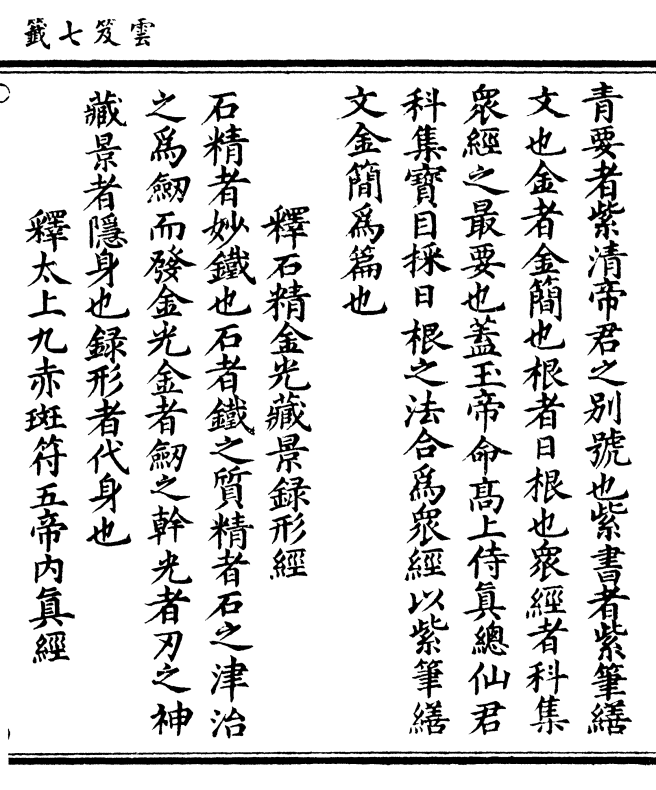 雲笈七籤
青要者紫清帝君之別號也紫書者紫筆繕
文也金者金簡也根者日根也衆經者科集
衆經之最要也蓋玉帝命髙上侍眞總仙君
科集寶目採日根之法合爲衆經以紫筆繕
文金簡爲篇也
釋石精金光藏景録形經
石精者妙鐵也石者鐵之質精者石之津治
之爲劒而發金光金者劒之幹光者刃之神
藏景者隱身也録形者代身也
釋太上九赤斑符五帝内眞經